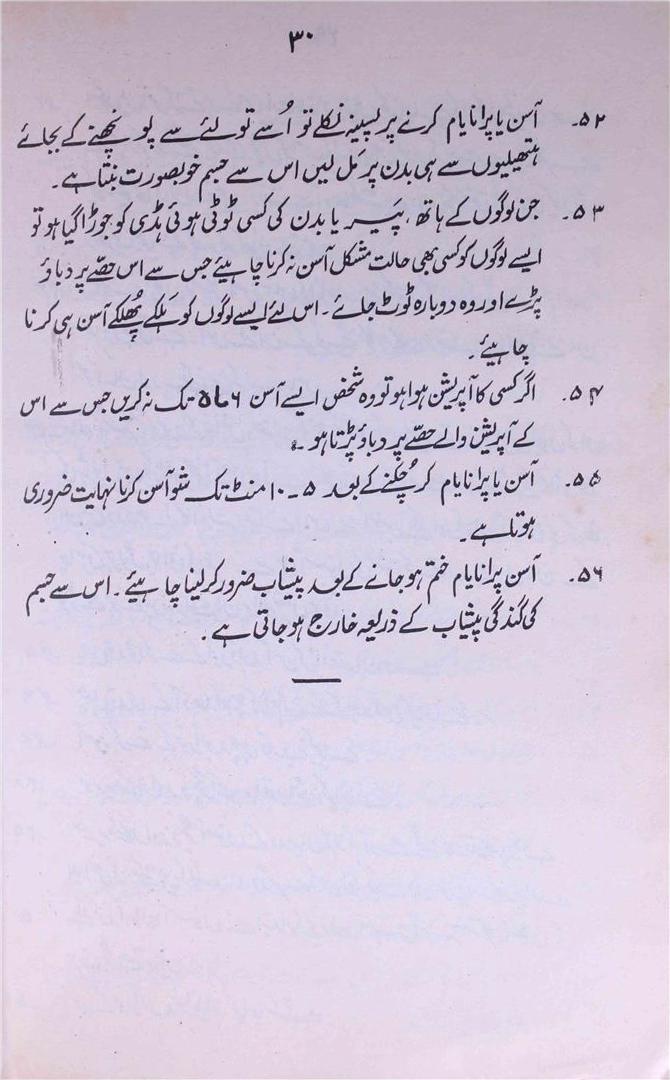 ۳۰
۵۲۔ آسن یا پرانا یام کرنے پر پسینہ نکلے تو اُسے تولئے سے پونچھنے کے بجائے
ہتھیلیوں سے ہی بدن پر مَل لیں اس سے جسم خوبصورت بنتا ہے۔
۵۳۔ جن لوگوں کے ہاتھ، پَیر یا بدن کی کسی ٹوٹی ہوئی ہڈی کو جوڑا گیا ہو تو
ایسے لوگوں کو کسی بھی حالت مشکل آسن نہ کرنا چاہیئے جس سے اس حصّے پر دباؤ
پڑے اور وہ دوبارہ ٹوٹ جائے۔ اس لئے ایسے لوگوں کو ہَلکے پُھلکے آسن ہی کرنا
چاہیئے۔
۵۴۔ اگر کسی کا آپریشن ہوا ہو تو وہ شخص ایسے آسن ۶ ماہ تک نہ کریں جس سے اس
کے آپریشن والے حصّے پر دباؤ پڑتا ہو۔
۵۵۔ آسن یا پرانا یام کر چُکنے کے بعد ۵۔۱۰ منٹ تک شو آسن کرنا نہایت ضروری
ہوتا ہے۔
۵۶۔ آسن پرانا یام ختم ہو جانے کے بعد پیشاب ضرور کر لینا چاہیئے۔ اس سے جسم
کی گندگی پیشاب کے ذریعہ خارج ہو جاتی ہے۔